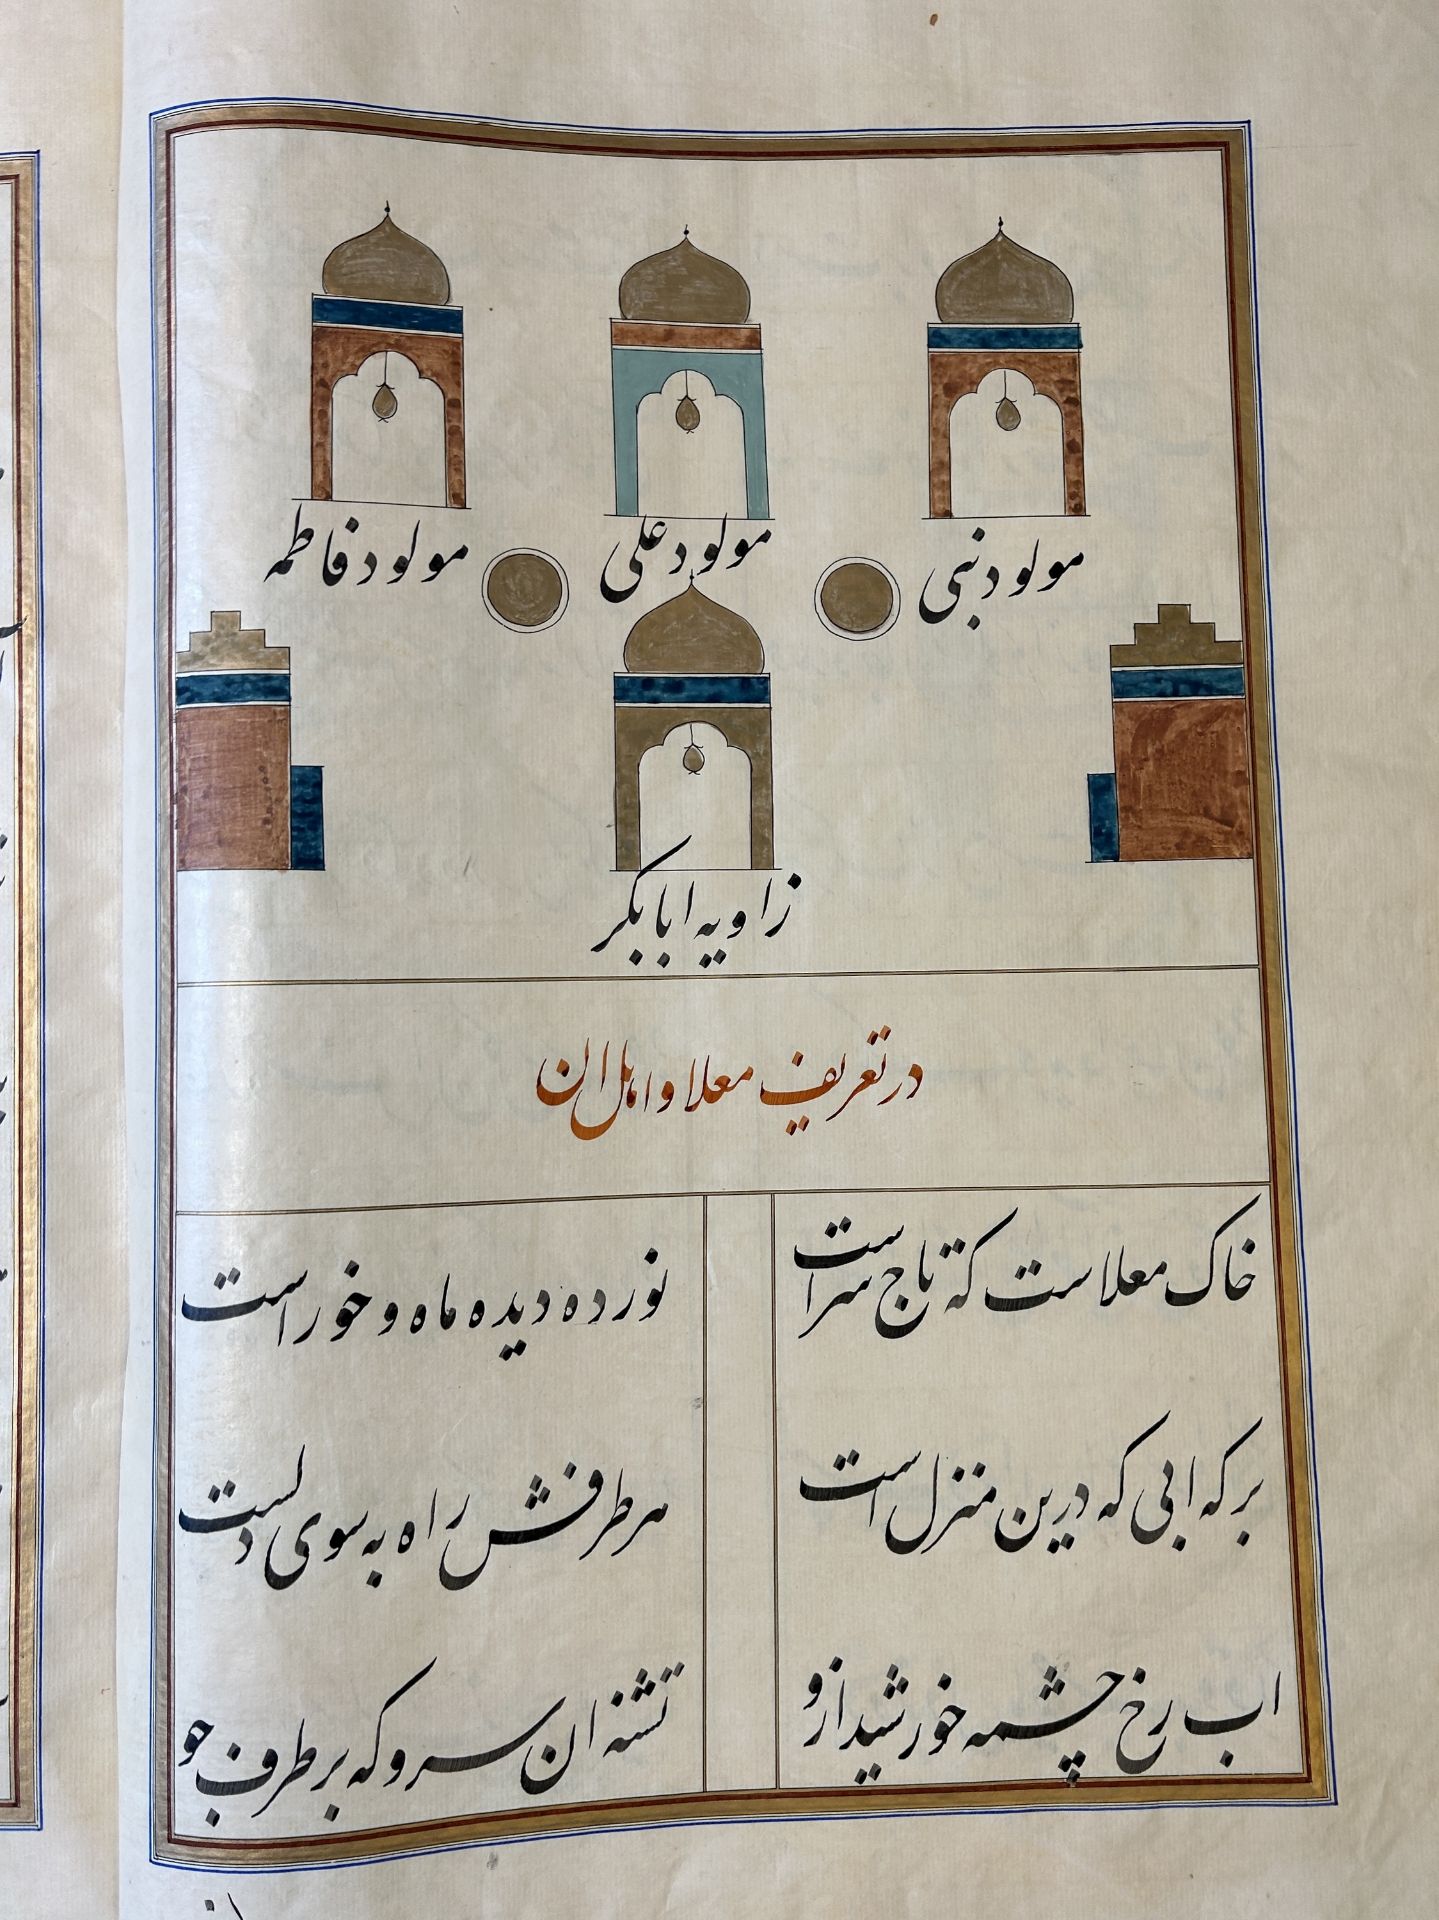 مولود نبی
مولود علی
مولود فاطمه
زاویه ابابکر
در تعریف معلا و اهل ان
خاک معلاست که تاج سر است
نور ده دیده ماه و خور است
برکه ابی که درین منزل است
هر طرفش راه به سوی دلست
اب رخ چشمه خورشید ازو
تشنه ان سرو که بر طرف جو